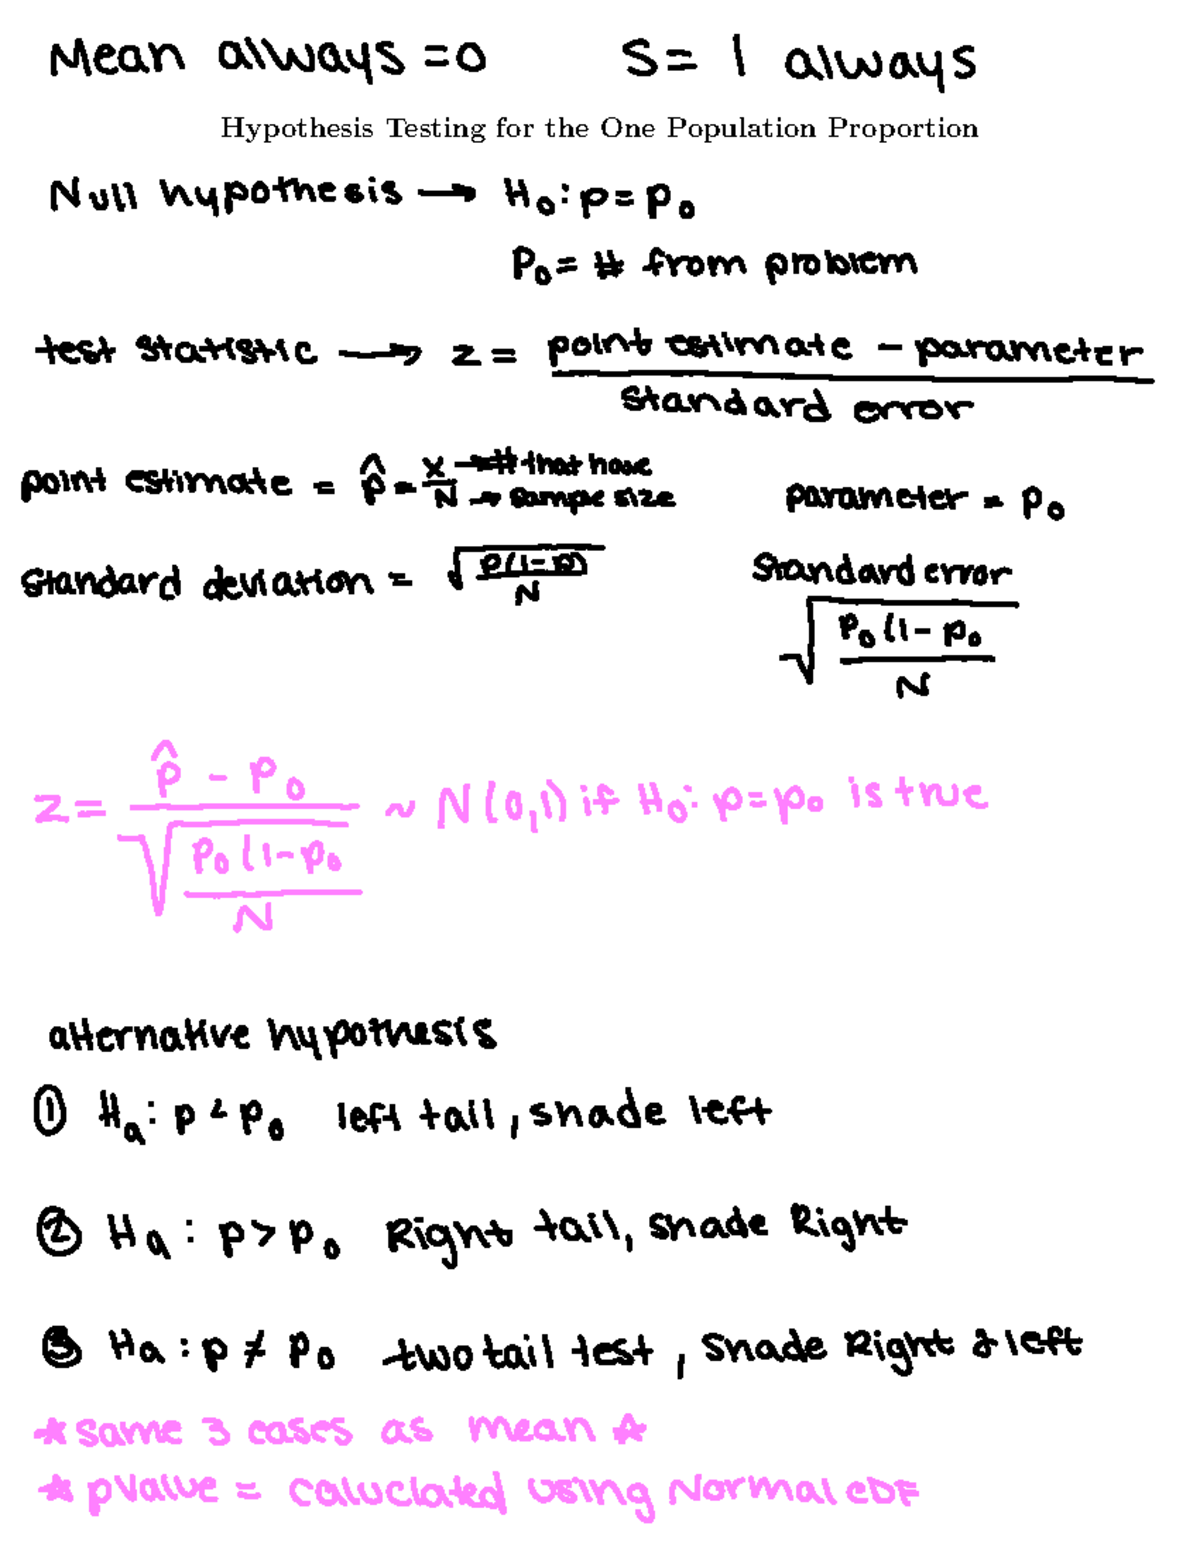 Mean always = 0 S = 1 always
Hypothesis Testing for the One Population Proportion
Null hypothesis → H₀: p = p₀
P₀ = # from problem
test statistic → z = point estimate - parameter / standard error
point estimate = p̂ = x/N x → # that have N → sample size
parameter = p₀
Standard deviation = √(p(1-p)/N)
Standard error
√(p₀(1-p₀/N
z = p̂ - p₀ / √(p₀(1-p₀/N ~ N(0,1) if H₀: p = p₀ is true
alternative hypothesis
① Hₐ: p < p₀ left tail, shade left
② Hₐ: p > p₀ Right tail, shade Right
③ Hₐ: p ≠ p₀ two tail test, Shade Right & left
☆ same 3 cases as mean ☆
☆ pvalue = caluclated using Normal CDF